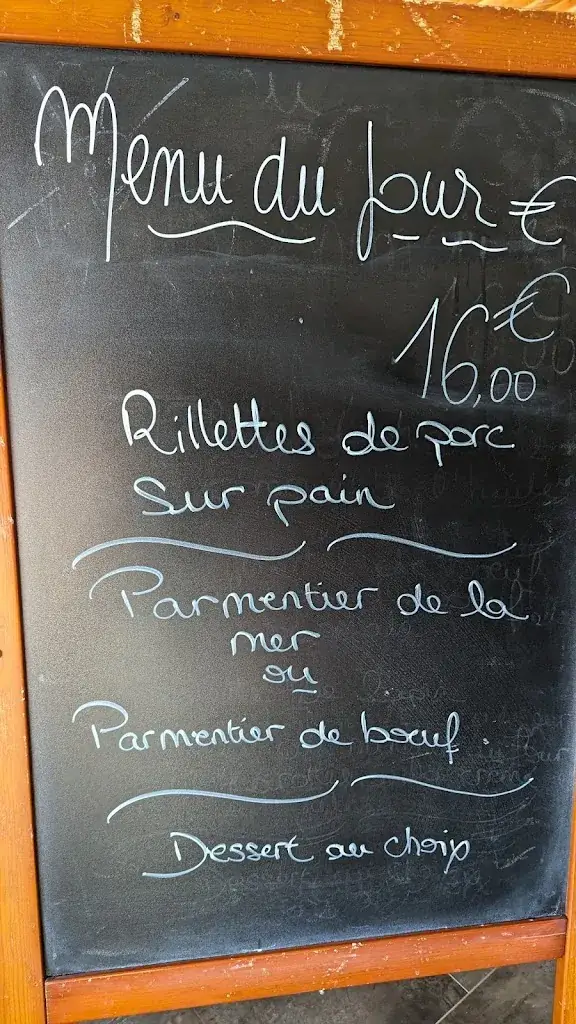 Menu du jour €
16,00 €
Rillettes de porc
Sur pain
Parmentier de la
mer
ou
Parmentier de bœuf.
Dessert au choix